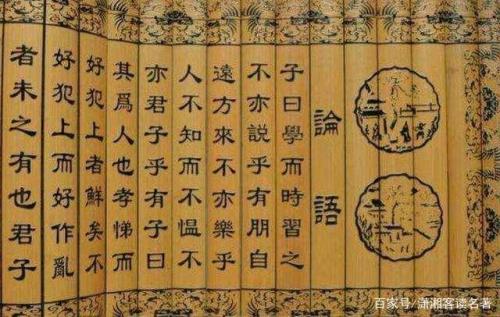 論語
子曰學而時習之
不亦說乎有朋自
遠方來不亦樂乎
人不知而不愠不
亦君子乎有子曰
其爲人也孝悌而
好犯上者鮮矣不
好犯上而好作亂
者未之有也君子
百家号/潇湘客读名著